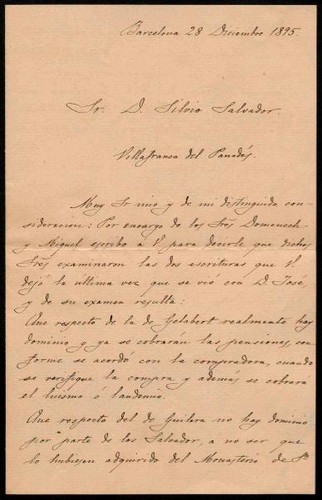 Barcelona 28 Diciembre 1895.
Sr. D. Silvio Salvador.
Villafranca del Panadés.
Muy Sr mio y de mi distinguida con-
sideracion: Por encargo de los Sres Domenech
y Miguel escribo á V. para decirle que dichos
Sres examinaron las dos escrituras que V.
dejó la última vez que se vió con D. José,
y de su examen resulta:
Que respecto de la de Gelabert realmente hay
dominio y ya se cobraran las pensiones, con-
forme se acordó con la compradora, cuando
se verifique la compra y además se cobrará
el luismo ó laudemio.
Que respecto del de Guilera no hay dominio
por parte de los Salvador, a no ser que
lo hubiesen adquirido del Monasterio de Sn